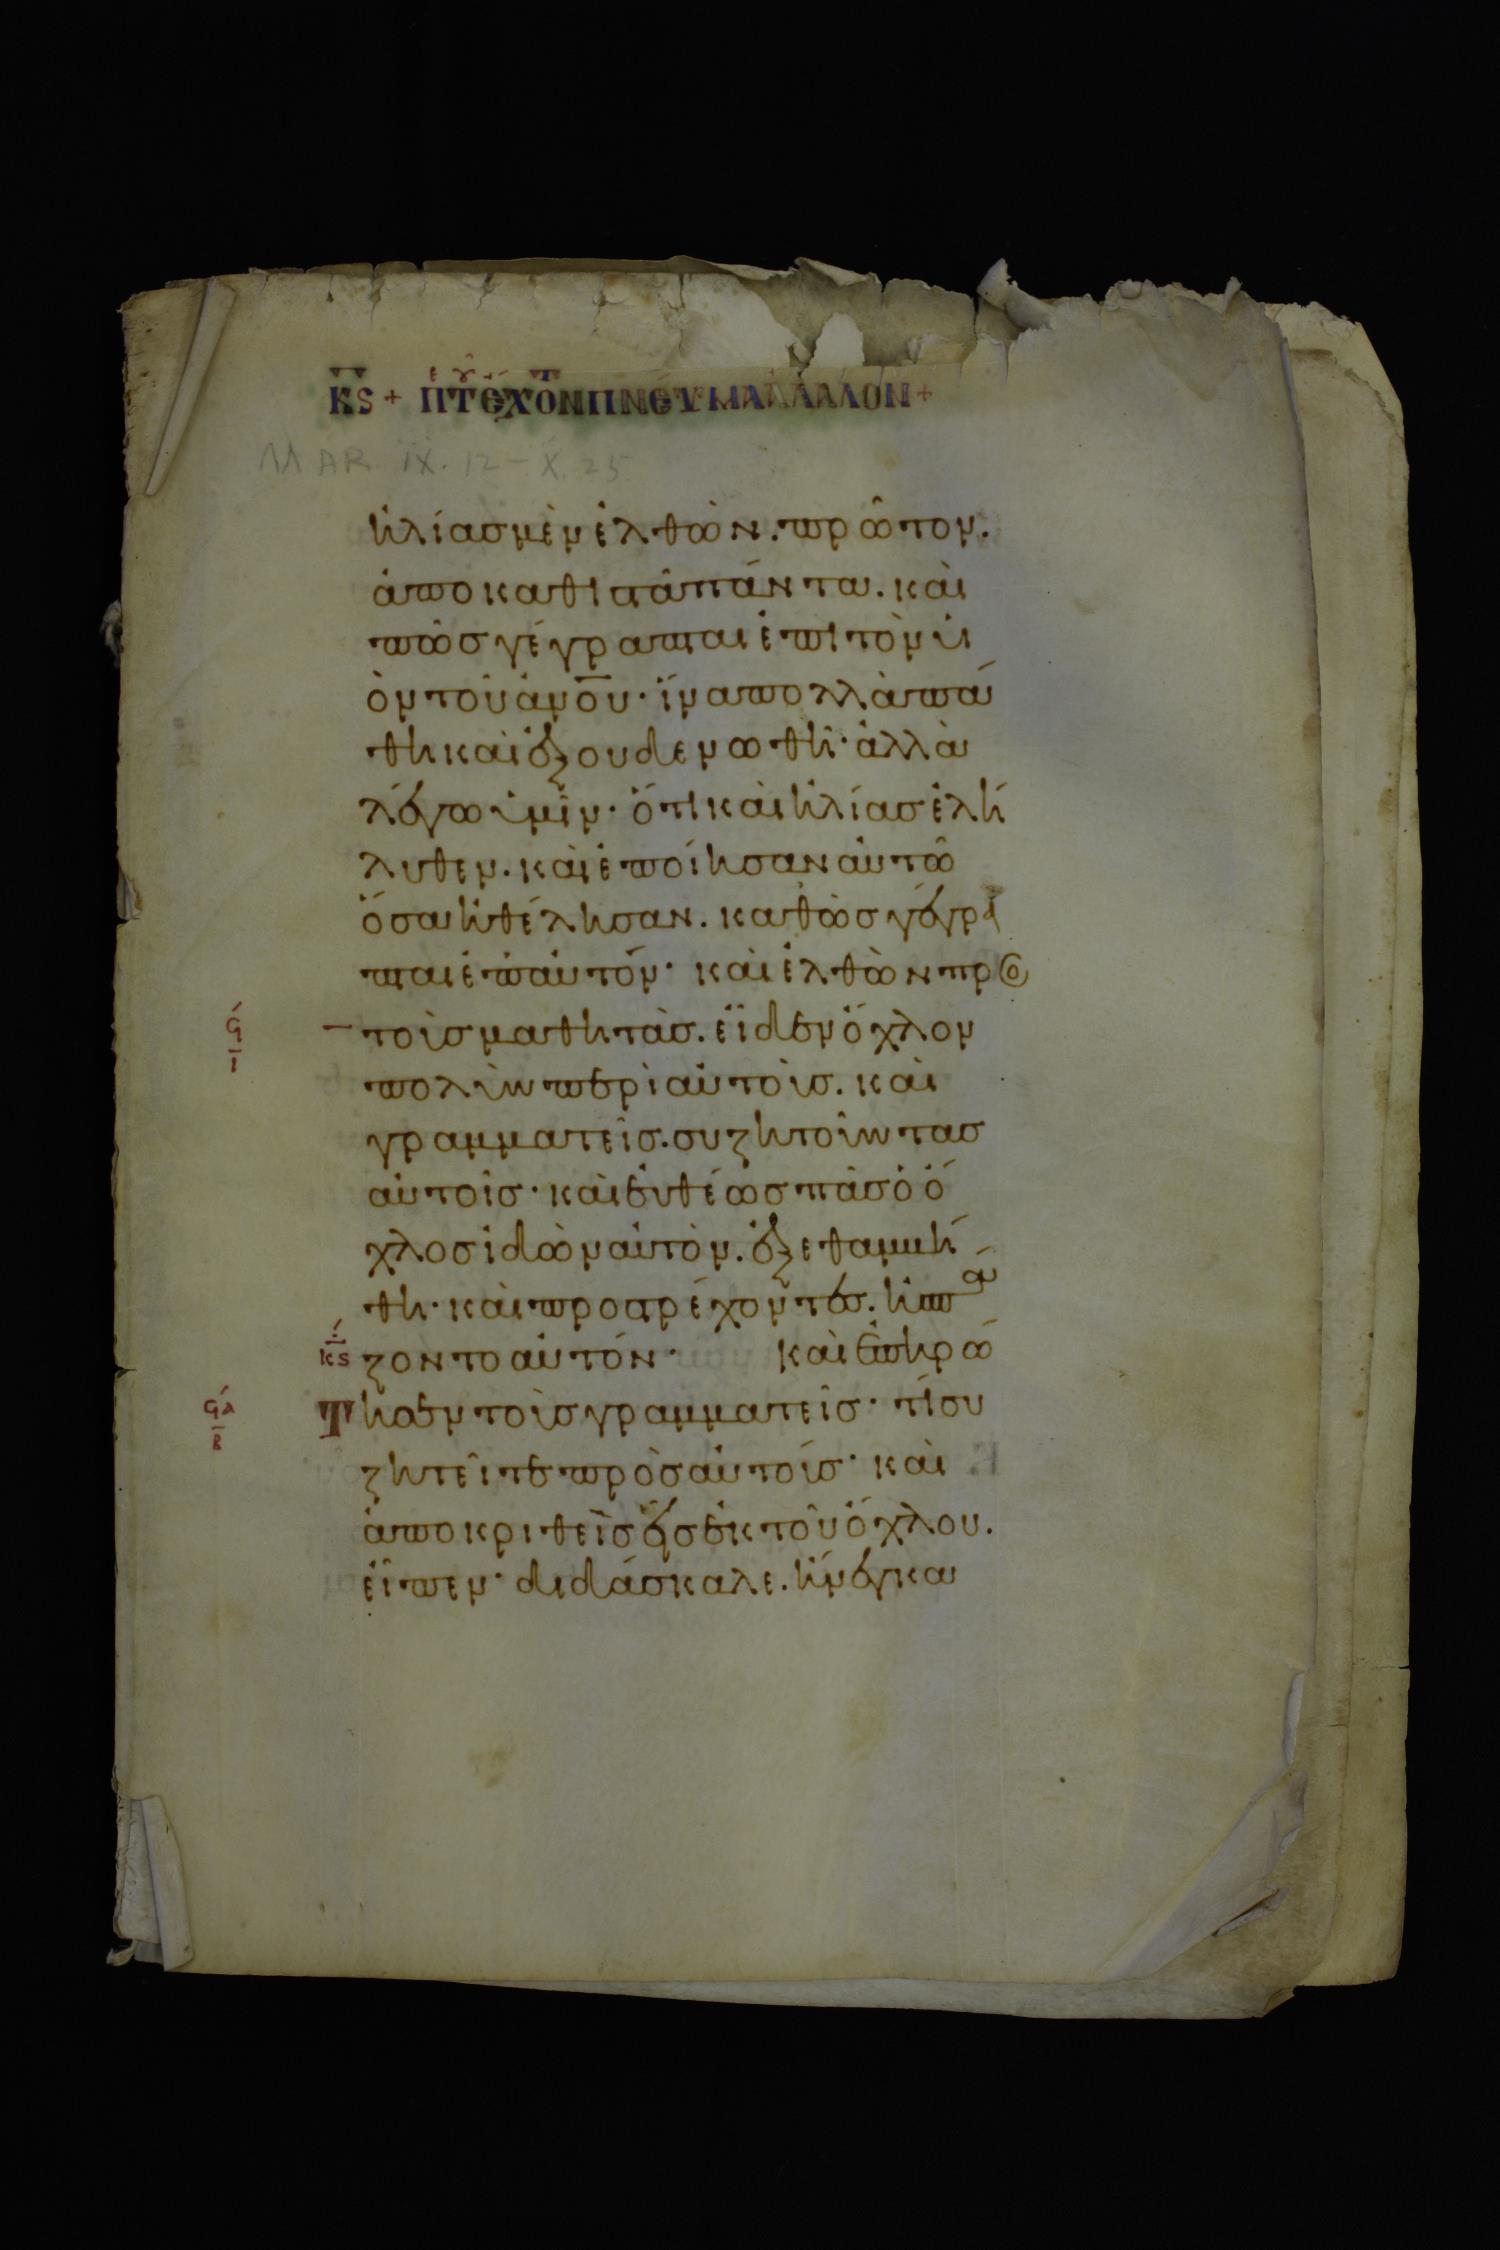 κς + πτ εχον πνευμα αλαλον +
MAR IX. 12 – X. 25
ἠλίας μὲν ἐλθὼν. πρῶτον.
ἀποκαθιστᾶ πάντα. καὶ
πῶς γέγραπται ἐπὶ τὸν ὑι
ὸν τοῦ ἀνου· ἵνα πολλὰ πά
θη καὶ ἐξουδενωθῆ· ἀλλὰ
λέγω ὑμῖν· ὅτι καὶ ἠλίας ἐλή
λυθεν. καὶ ἐποίησαν αὐτῶ
ὅσα ἠθέλησαν. καθὼς γέγρα
πται ἐπ' αὐτόν· καὶ ἐλθὼν πρὸσ
ϟ
ι
τοὺς μαθητὰς. εἶδεν ὄχλον
πολὺν περὶ αὐτοὺς. καὶ
γραμματεῖς. συζητοῦντας
αὐτοῖς· καὶ εὐθέως πᾶς ὁ ὄ
χλος ἰδὼν αὐτὸν. ἐξεθαμβή
θη· καὶ προστρέχοντες. ἠσπά
κς ζοντο αὐτόν· καὶ ἐπηρώ
ϟα
β
Τησεν τοὺς γραμματεῖς· τί συ
ζητεῖτε πρὸς αὐτούς· καὶ
ἀποκριθεὶς εἷς ἐκ τοῦ ὄχλου.
εἶπεν· διδάσκαλε. ἤνεγκα